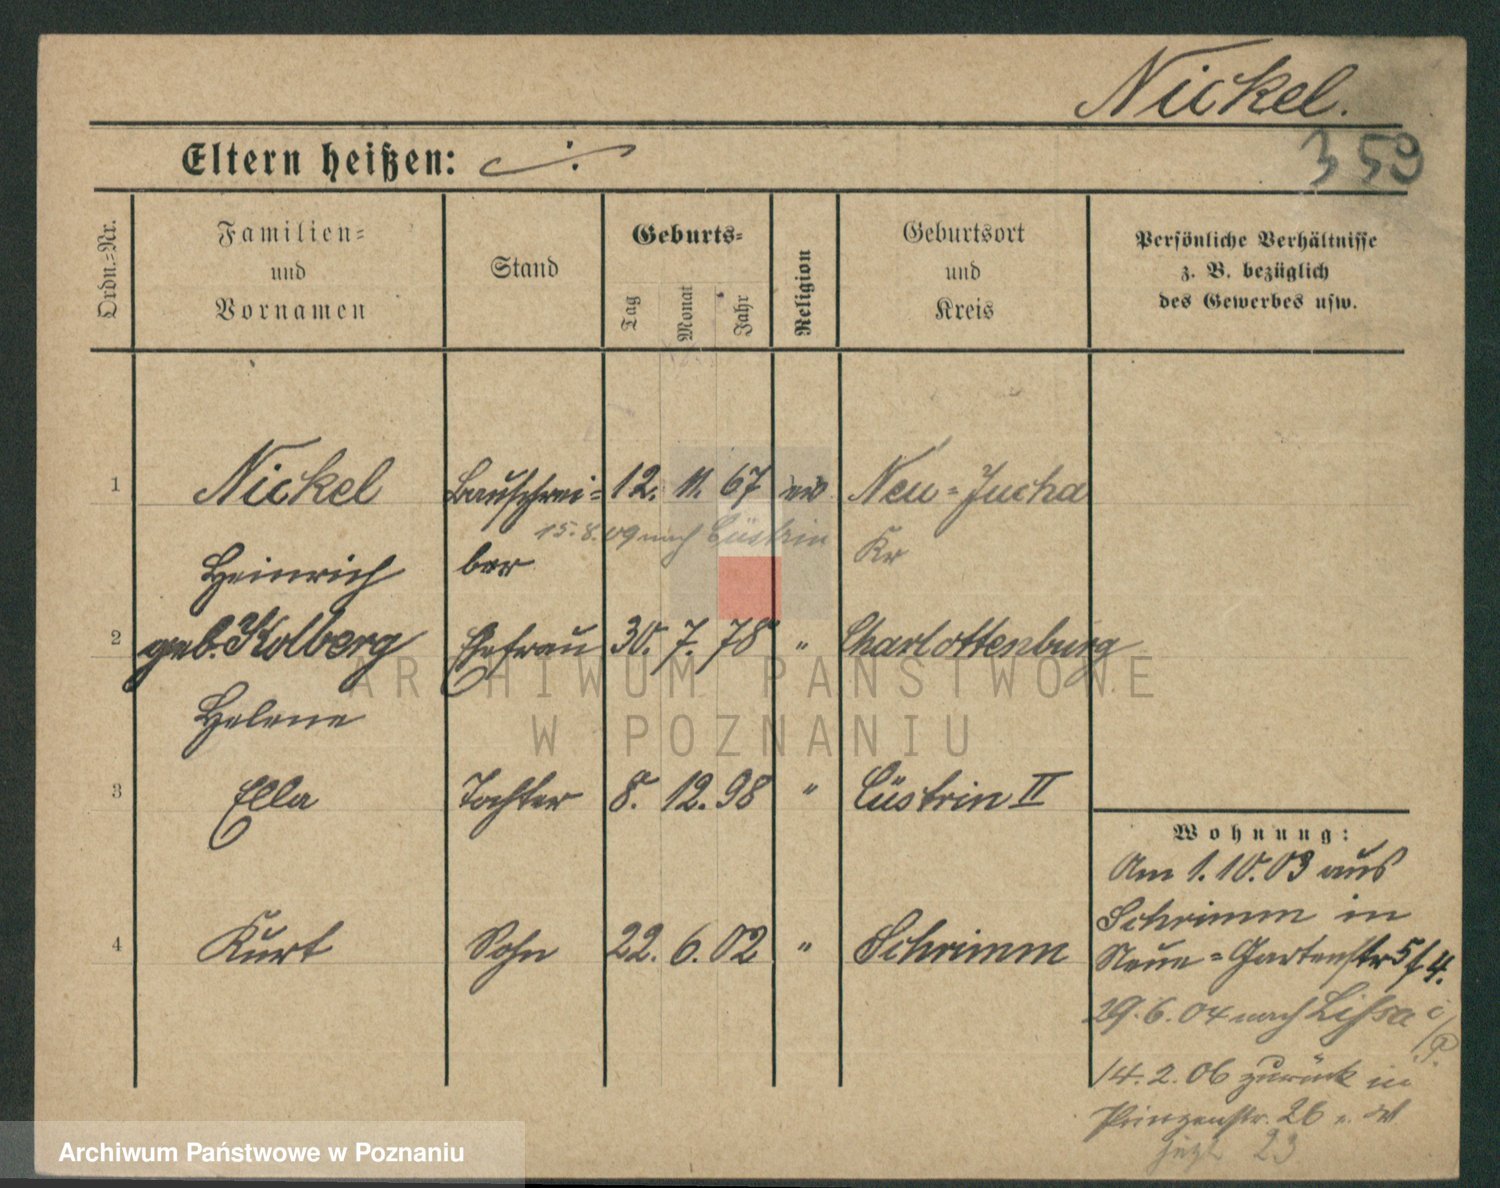 Nickel.
Eltern heißen: ./.
359
Ordn.-Nr.
Familien-
und
Vornamen
Stand
Geburts-
Tag
Monat
Jahr
Religion
Geburtsort
und
Kreis
Persönliche Verhältnisse
z. B. bezüglich
des Gewerbes usw.
1 Nickel Bauschrei- 12. 11. 67 ev Neu-Jucha
15.8.09 nach Cüstrin
Heinrich ber Kr
2 geb. Kolberg Ehefrau 30. 7. 78 " Charlottenburg
Helene
3 Ella Tochter 8. 12. 98 " Cüstrin II
4 Kurt Sohn 22. 6. 02 " Schrimm
Wohnung:
Am 1.10.03 aus
Schrimm in
Neue-Gartenstr 5 f 4.
29.6.04 nach Lissa i/P.
14.2.06 zurück in
Prinzenstr. 26
jetzt 23
ARCHIWUM PAŃSTWOWE
W POZNANIU
Archiwum Państwowe w Poznaniu